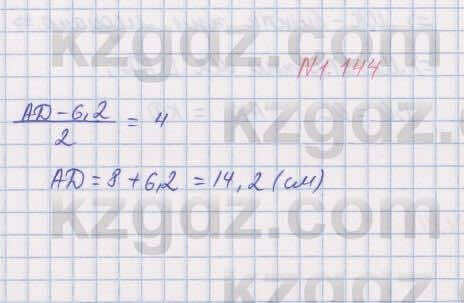 kzgdz.com
N 1. 144
(AD - 6,2) / 2 = 4
AD = 8 + 6,2 = 14,2 (см)
kzgdz.com
kzgdz.com